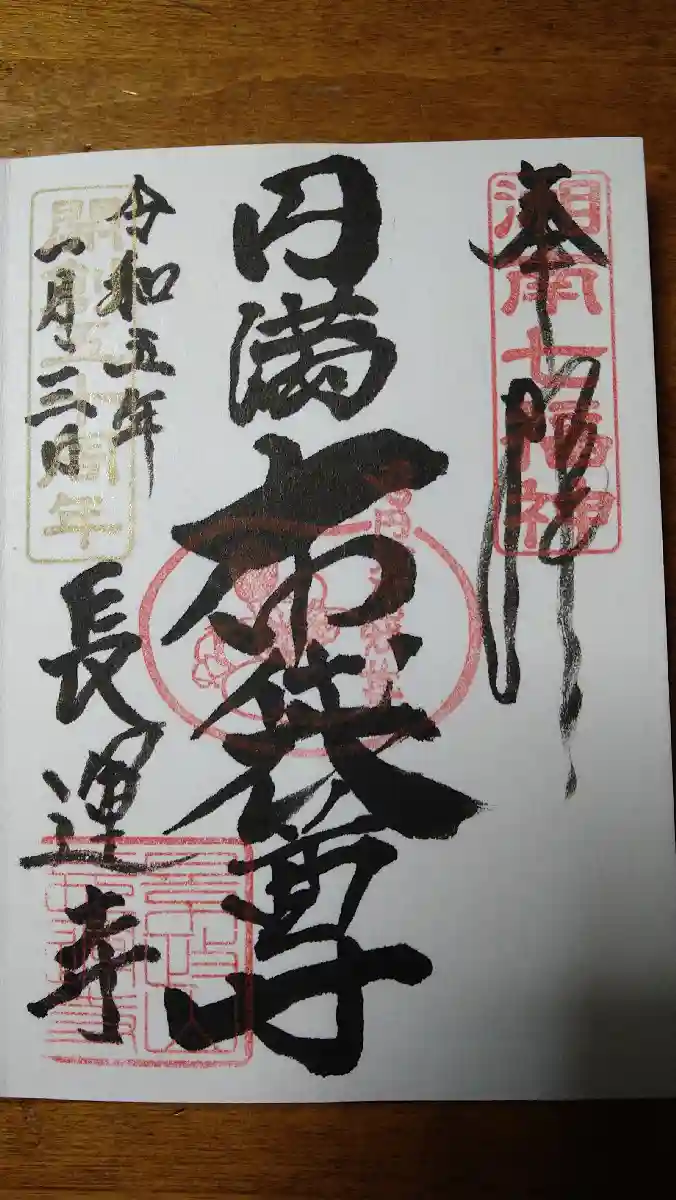 奉拝
湘南七福神
円満
布袋尊
令和五年
一月三日
開創五十周年
長運寺